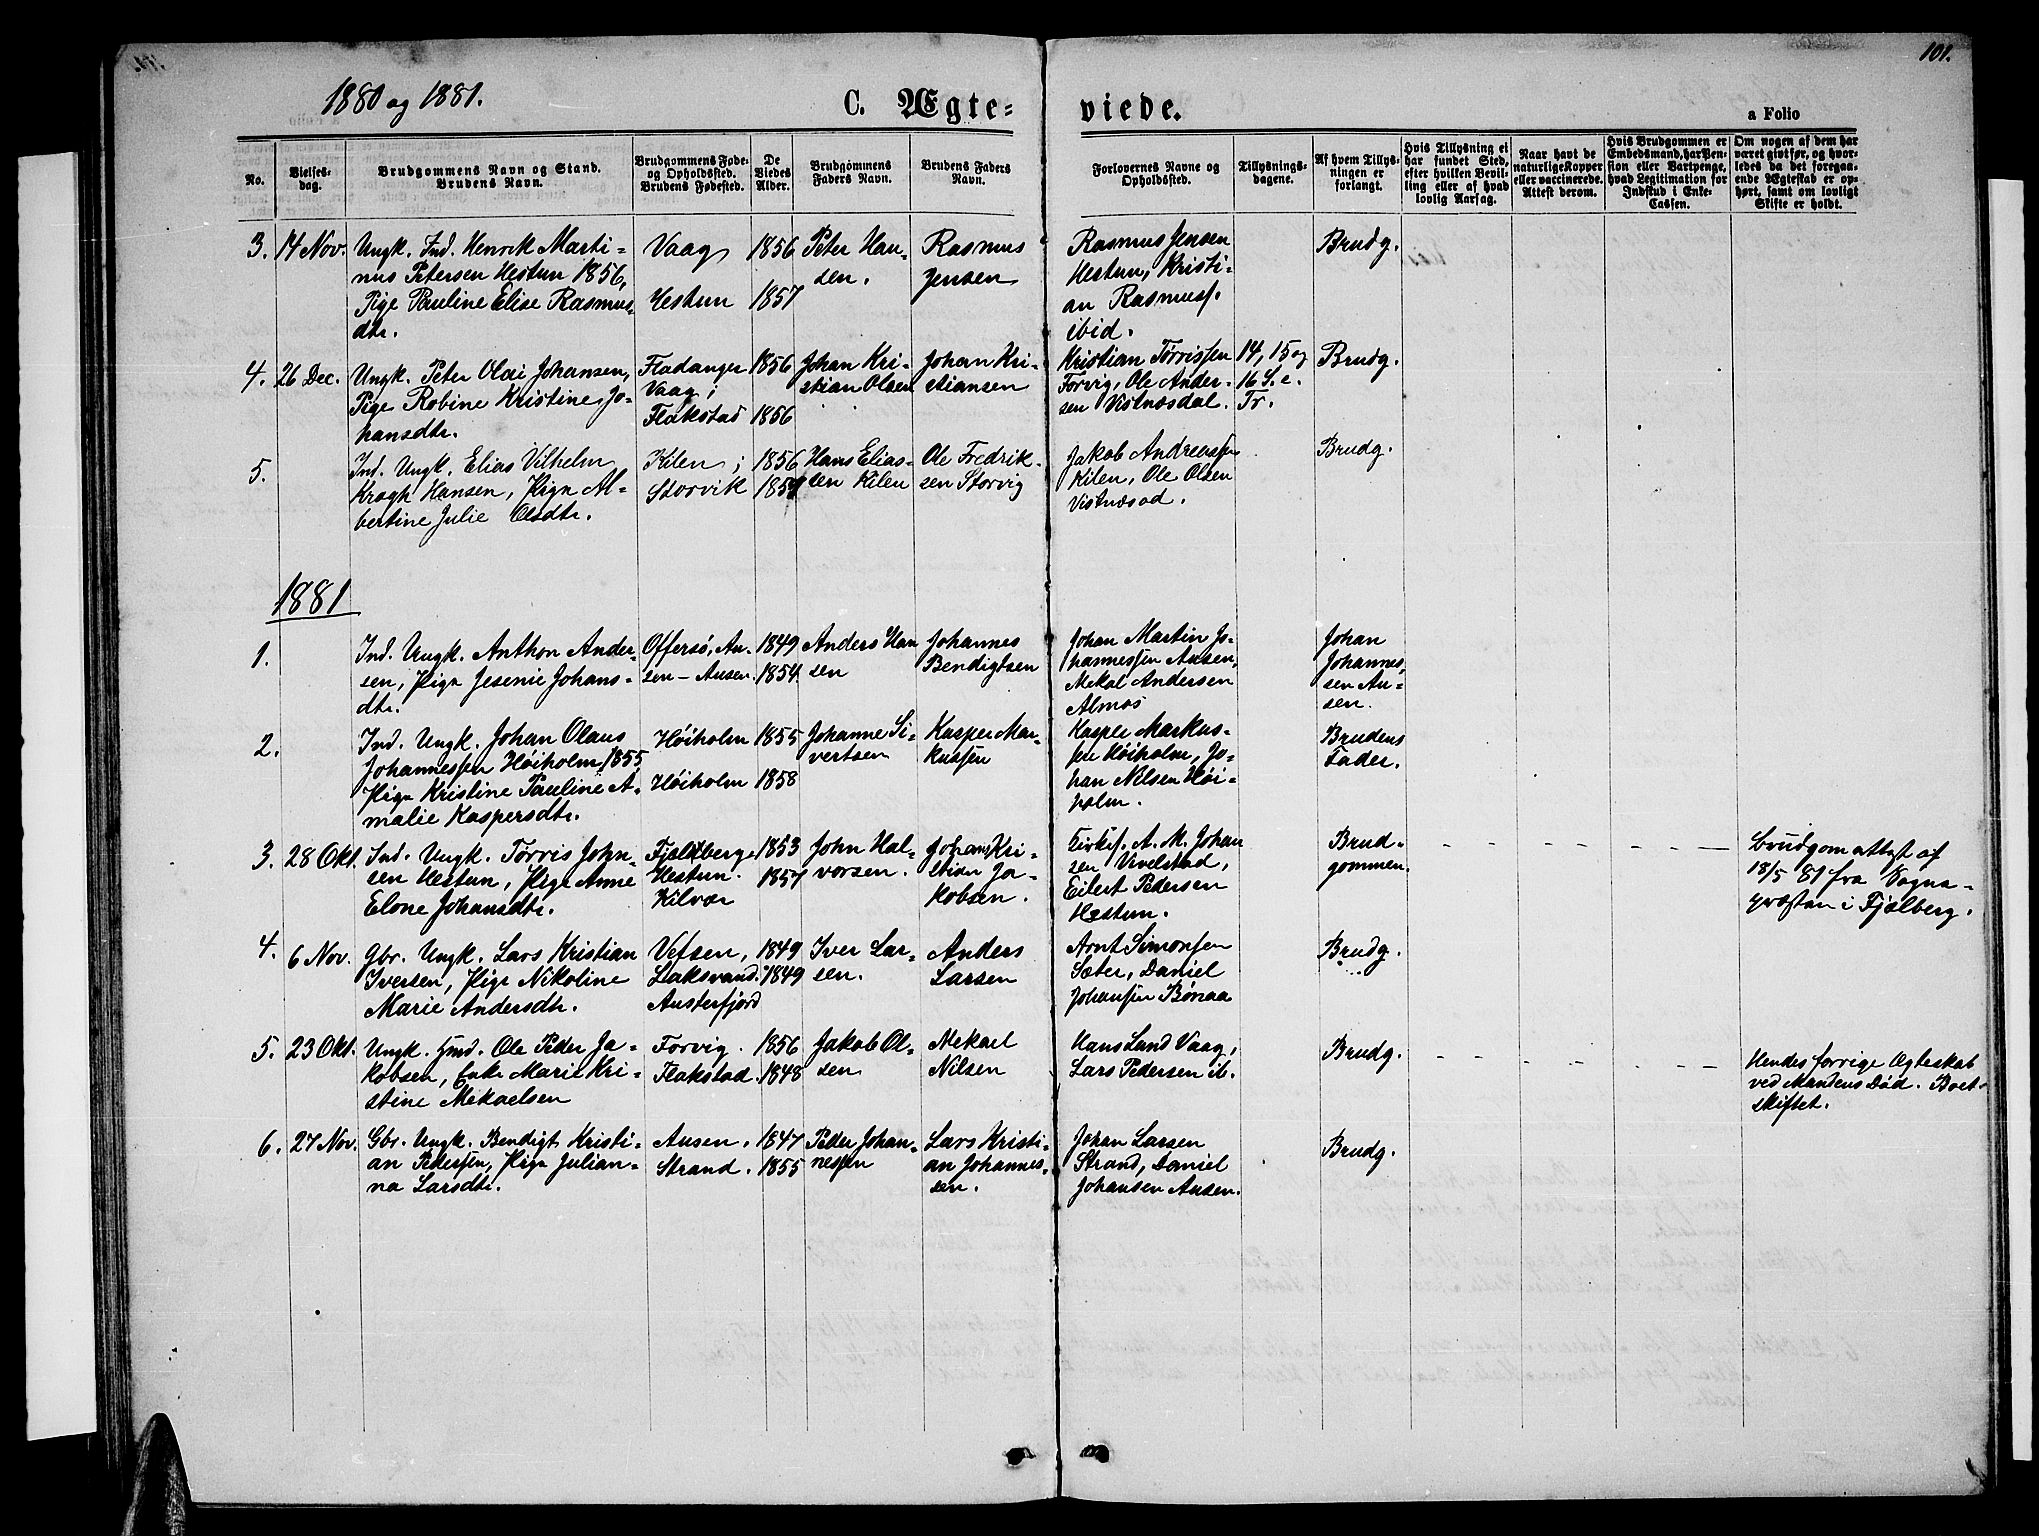 1880 og 1881.
C. Ægte-
viede.
101.
a Folio
No.
Vielses-
dag.
Brudgommens Navn og Stand.
Brudens Navn.
Brudgommens Føde-
og Opholdssted.
Brudens Fødested.
De
Viedes
Alder.
Brudgommens
Faders Navn.
Brudens Faders
Navn.
Forlovernes Navne og
Opholdssted.
Tillysnings-
dagene.
Af hvem Tillys-
ningen er
forlangt.
Hvis Tillysning ei
har fundet Sted,
efter hvilken Bevil-
ling eller af hvad
lovlig Aarsag.
Naar havt de
naturlige Kopper
eller vaccinerede.
Attest derom.
Hvis Brudgommen er
Embedsmand, har Pen-
sion eller Vartpenge,
hvad Legitimation for
Indskud i Enke-
Cassen.
Om nogen af dem har
været givt før, og hvor-
ledes da det foregaa-
ende Ægteskab er op-
hørt, samt om lovligt
Skifte er holdt.
3.
14 Nov.
Ungk. Ind. Henrik Marti-
nus Petersen Hestun 1856,
Pige Pauline Elise Rasmus-
dtr.
Vaag
Hestun
1856
1857
Peter Han-
sen.
Rasmus
Jensen
Rasmus Jensen
Hestun, Kristi-
an Rasmuss.
ibid.
Brudg.
4.
26 Dec.
Ungk. Peter Olai Johansen,
Pige Robine Kristine Jo-
hansdtr.
Fladanger
Vaag;
Flakstad
1856
1856
Johan Kri-
stian Olsen
Johan Kri-
stiansen
Kristian Tørrissen
Forvig, Ole Ander-
sen Vistnæsdal.
14, 15 og
16 S. e.
Tr.
Brudg.
5.
Ind. Ungk. Elias Vilhelm
Krogh Hansen, Pige Al-
bertine Julie Olsdtr.
Kilen;
Storvik
1856
Hans Elias-
sen Kilen
Ole Fredrik-
sen Storvig
Jakob Andreassen
Kilen, Ole Olsen
Vistnæsod.
Brudg.
1881
1.
Ind. Ungk. Anthon Ander-
sen, Pige Jesenie Johans-
dtr.
Offersø, Au-
sen – Ausen.
1849
1854.
Anders Han
sen
Johannes
Bendigtsen
Johan Martin Jo-
hannessen Ausen,
Mekal Andersen
Almos
Johan
Johannes-
sen Au-
sen.
2.
Ind. Ungk. Johan Olaus
Johannessen Høiholm, 1855
Pige Kristine Pauline A-
malie Kaspersdtr.
Høiholm
Høiholm
1855
1858
Johanne Si-
vertsen
Kasper Mar-
kussen
Kasper Markus-
sen Høiholm, Jo-
han Nilsen Høi-
holm.
Brudens
Fader.
3.
28 Okt.
Ind. Ungk. Tørris John-
sen Hestun, Pige Anne
Elone Johansdtr.
Fjeldberg
Hestun.
Kilvær
1853
1857
John Hal-
vorsen.
Johan Kri-
stian Ja-
kobsen.
Kirkes. A. M. Johan
sen Vivelstad,
Eilert Pedersen
Hestun.
Brud-
gommen.
Brudgom attest af
18/5 81 fra Sogne-
præsten i Fjelberg.
4.
6 Nov.
Gbr. Ungk. Lars Kristian
Iversen, Pige Nikoline
Marie Andersdtr.
Vefsen,
Laksvand.
Austerfjord
1849
1849
Iver Lar-
sen.
Anders
Larsen
Arnt Simonsen
Sæter, Daniel
Johansen Bønaa
Brudg.
5.
23 Okt.
Ungk. Hmd. Ole Peder Ja-
kobsen, Enke Marie Kri-
stine Mekaelsen
Forvig.
Flakstad.
1856
1848
Jakob Ol-
sen
Mekael
Nilsen
Hans Lund Vaag,
Lars Pedersen ib.
Brudg.
Hendes forrige Ægteskab
ved Mandens Død. Boet
skiftet.
6.
27 Nov.
Gbr. Ungk. Bendigt Kristi-
an Pedersen, Pige Julian-
na Larsdtr.
Ausen.
Strand.
1847
1855
Peder Johan-
nessen
Lars Kristi-
an Johannes-
sen.
Johan Larsen
Strand, Daniel
Johansen Ausen.
Brudg.